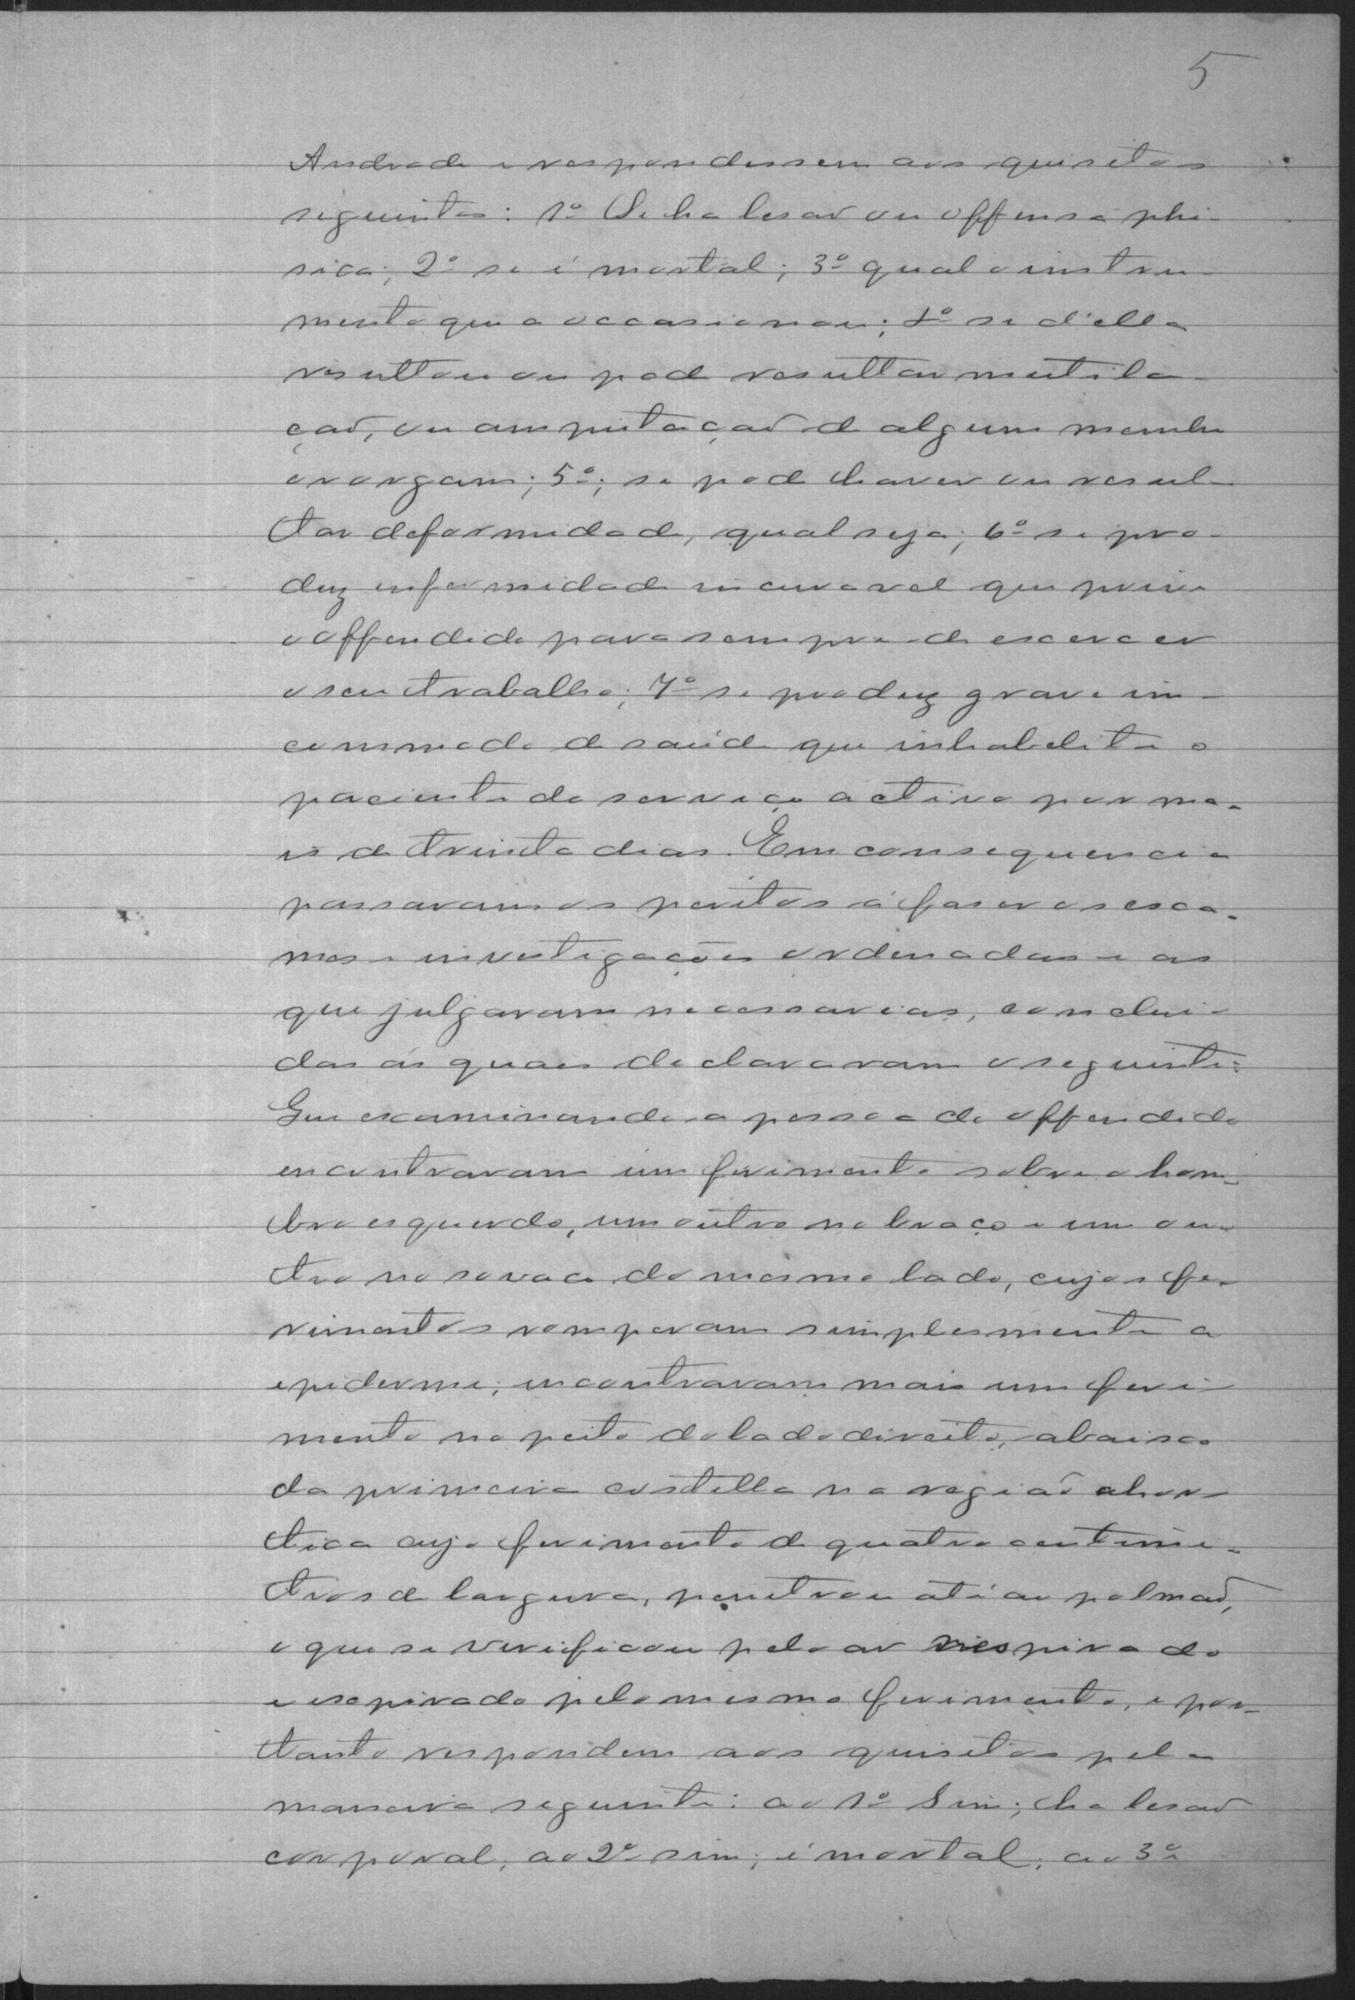 5
Andrade e respondessem aos quisitos
seguintes: 1º Se ha lesaõ ou offensa phi-
sica; 2º se é mortal; 3º qual o instru-
mento que a occasionou; 4º se d'ella
resultou ou pode resultar mutila-
çaõ, ou amputaçaõ de algum membro
ou orgam; 5º; se pode haver ou resul-
tar deformidade, qual seja; 6º se pro-
duz enfermidade incuravel que prive
o offendido para sempre de escercer
o seu trabalho; 7º se produz grave in-
commodo de saúde que inhabelite o
paciente do serviço activo por ma-
is de trinta dias. Em consequencia
passaram os peritos á faser os esca-
mes e investigações ordenadas e as
que julgaram necessarias, conclui-
das as quaes declararam o seguinte:
Que escaminando a pessoa do offendido
encontraram um ferimento sobre o hom-
bro esquerdo, um outro no braço e um ou-
tro no sovaco do mesmo lado, cujos fe-
rimentos romperam simplesmente a
epiderme; encontraram mais um feri-
mento no peito do lado direito, abaisco
da primeira costella na regiaõ ahor-
tica cujo ferimento de quatro centime-
tros de largura, penetrou até ao polmaõ,
o que se verificou pelo ar respirado
e espirado pelo mesmo ferimento, e por-
tanto respondem aos quisitos pela
maneira seguinte: ao 1º Sim; ha lesaõ
corporal; ao 2º sim; é mortal; ao 3º